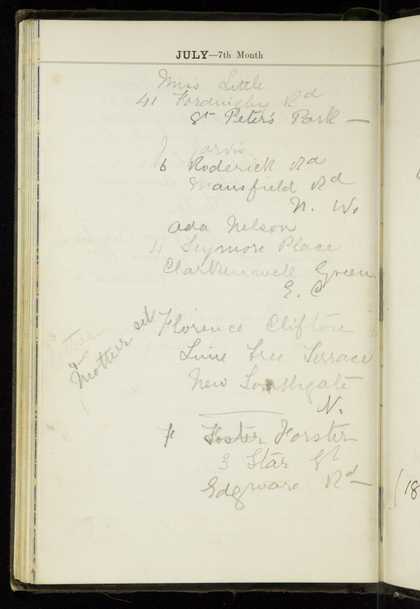 JULY—7th Month
Miss Little
41 Fordingley Rd
St Peter's Park —
J. Jarvis
6 Roderick Rd
Mansfield Rd
N. W.
Ada Nelson
11 Seymore Place
Clarkenwell Green
E. C
Florence Clifton
Lime Tree Terrace
New Southgate
N.
Mother's set
F Foster Forster
3 Star St
Edgware Rd —
(18